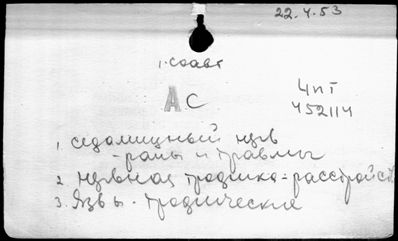 22.4.53
1. соавт
АС
Ч п Т
452114
1. седалищный нерв
- раны и травмы
2. нервная трофика - расстройств
3. Язвы - трофические